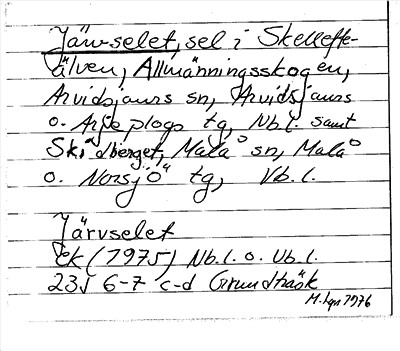 Järvselet, sel i Skellefte-
älven, Allmänningsskogen,
Arvidsjaurs sn, Arvidsjaurs
o. Arjeplogs tg, Nb.l. samt
Skidberget, Malå sn, Malå
o. Norsjö tg, Vb.l.
Järvselet
Ek (1975) Nb.l. o. Vb.l.
23J 6-7 c-d Grundträsk
M. Lgn 1976